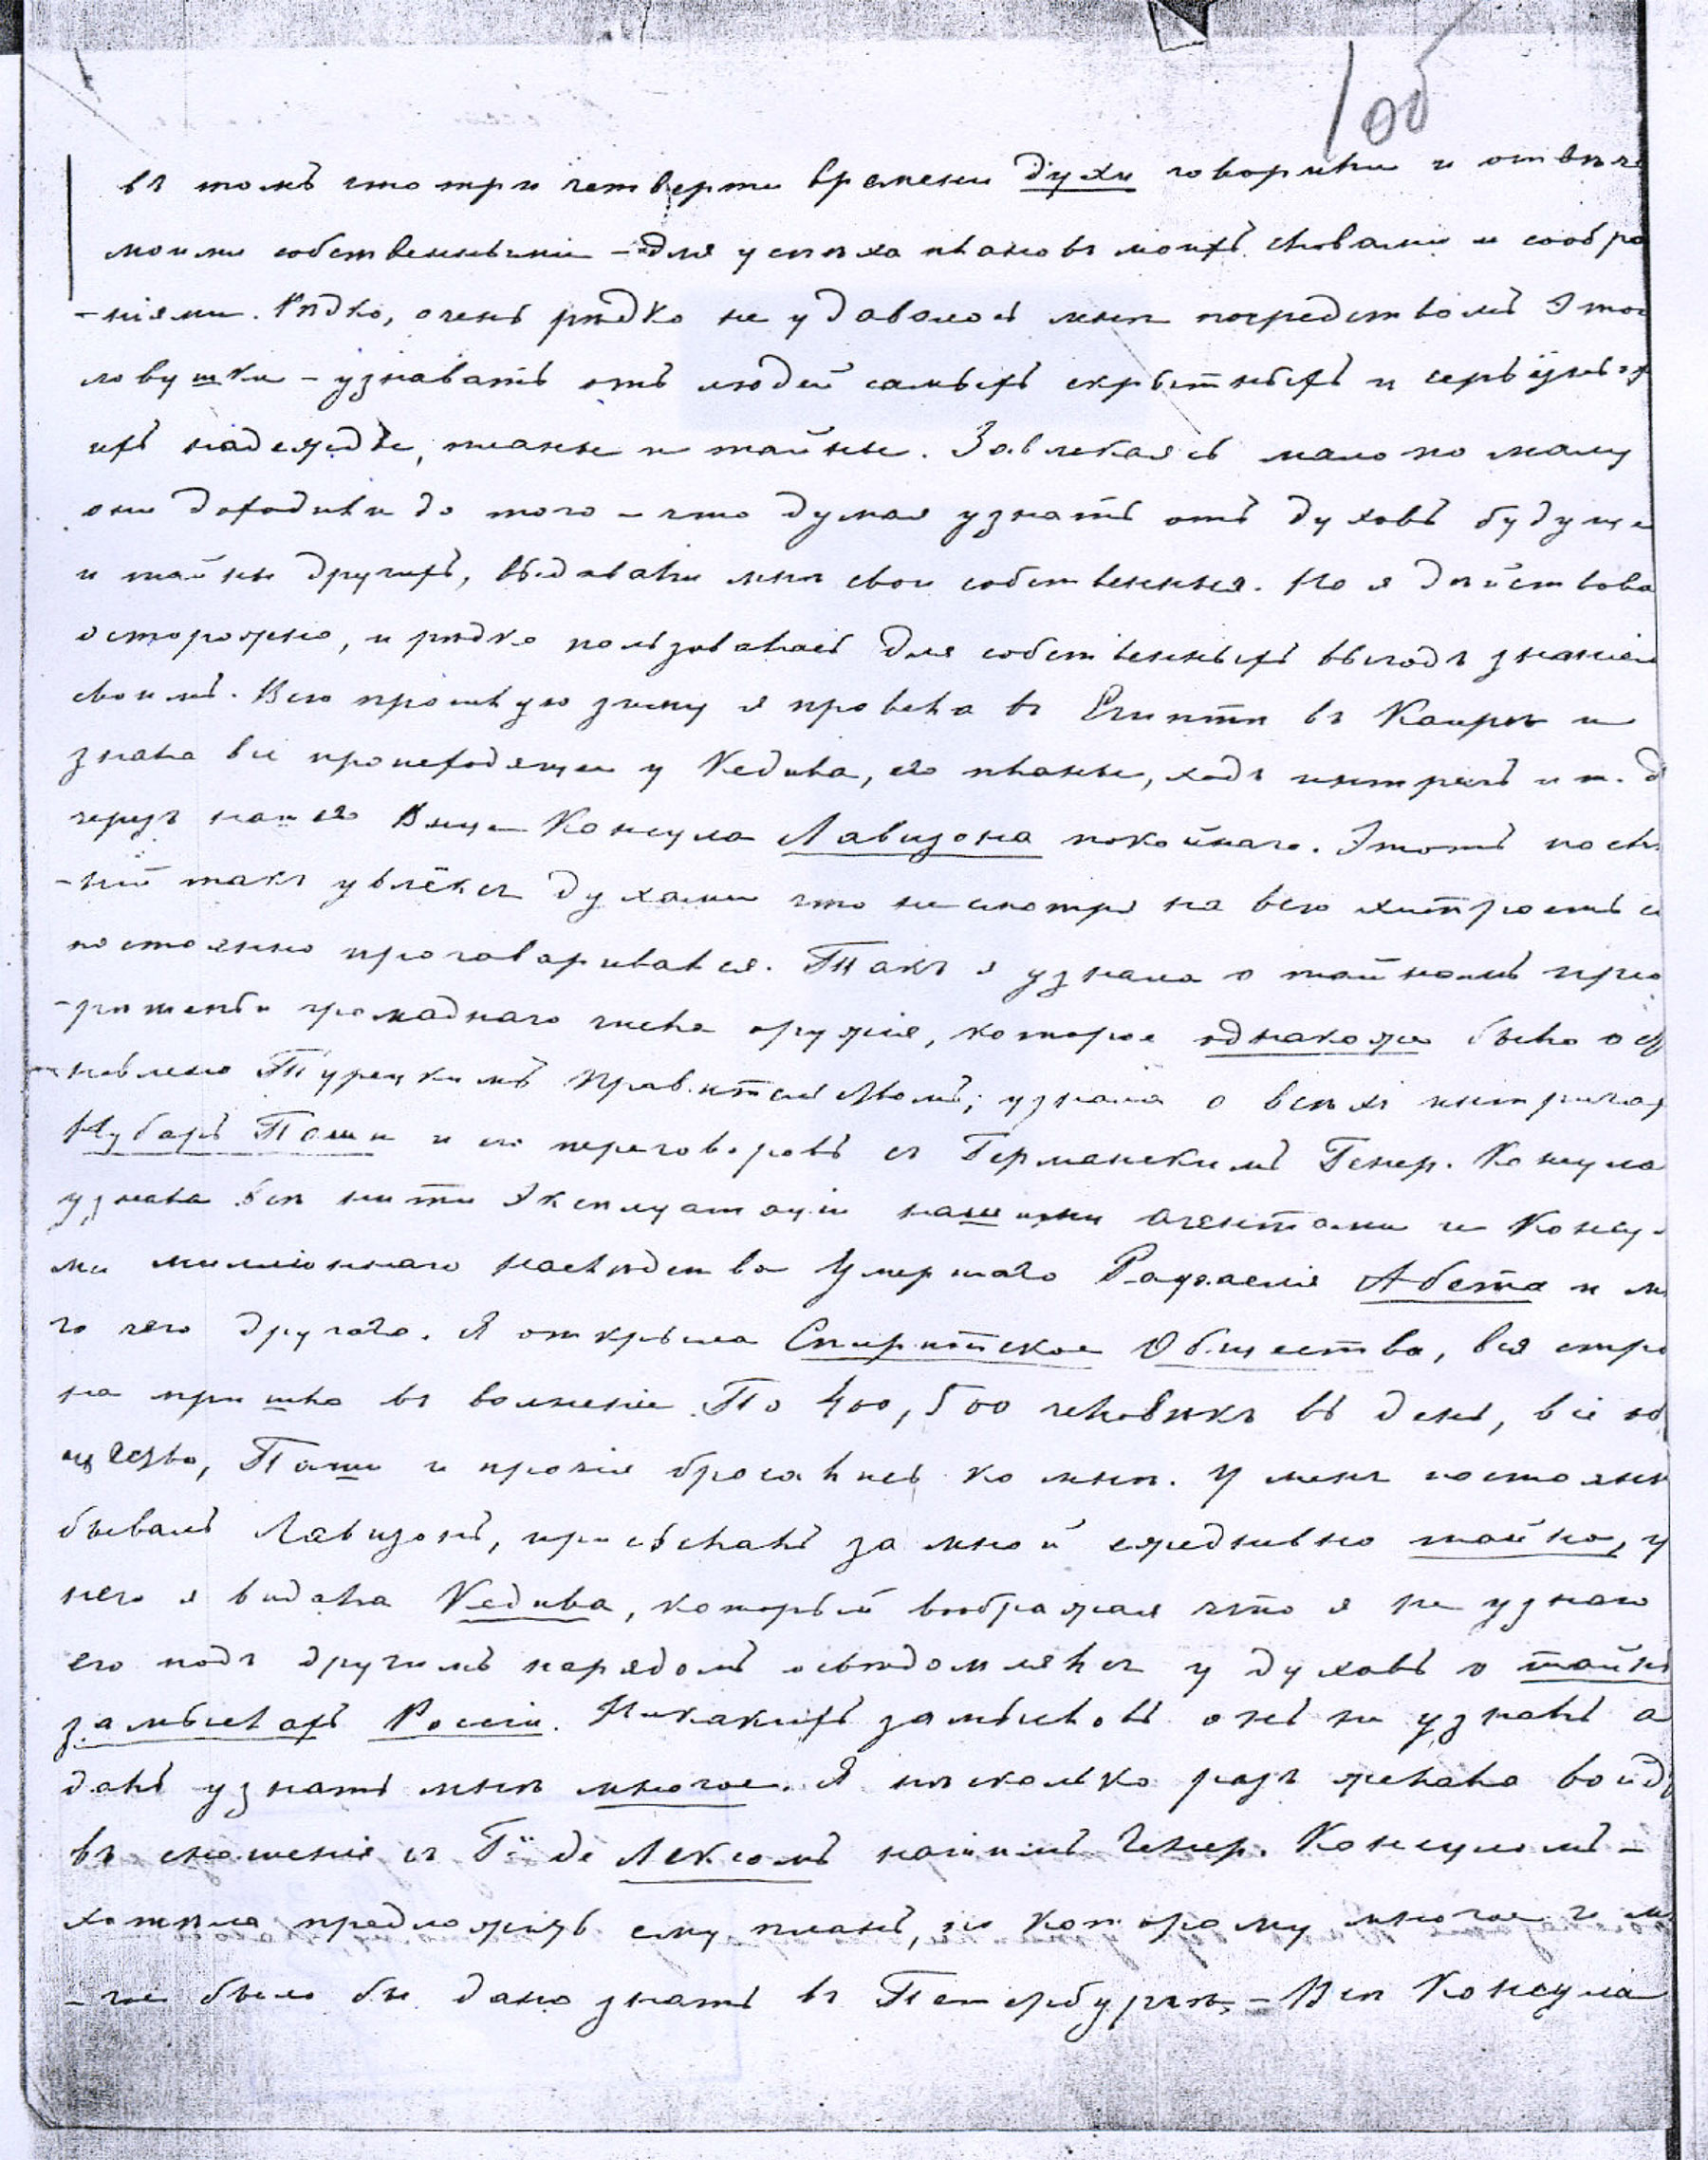 1об
въ томъ что три четверти времени духи говорили и отвѣча
моими собственными – для успѣха плановъ моихъ словами и сообра
-ніями. Рѣдко, очень рѣдко не удавалось мнѣ посредствомъ этой
ловушки – узнавать отъ людей самыхъ скрытныхъ и серьёзныхъ
ихъ надежды, планы и тайны. Завлекаясь мало по малу
они доходили до того – что думая узнать отъ духовъ будуще
и тайны другихъ, выдавали мнѣ свои собственныя. Но я дѣйствова
осторожно, и рѣдко пользовалась для собственныхъ выгодъ знаніем
своимъ. Всю прошлую зиму я провела въ Египтѣ въ Каирѣ и
знала всё происходящее у Кедива, его планы, ходъ интригъ и т. д
черезъ нашего Вице-Консула Лавизона покойнаго. Этотъ послѣ
-ній такъ увлёкся духами что несмотря на всю хитрость с
постоянно проговаривался. Такъ я узнала о тайномъ прiо
-рѣтеньи громаднаго числа оружія, которое однакоже было ос
тавлено Турецкимъ Правительствомъ; узнала о всѣхъ интригах
Нубаръ Паши и его переговоровъ съ Германскимъ Генер. Консула
узнала всѣ нити эксплуатаціи нашими агентами и Консу-
ми милліоннаго наслѣдства Умершаго Рафаеля Абета и мн
го чего другаго. Я открыла Спиритское Общество, вся стра
на пришла въ волненіе. По 400, 500 человѣкъ въ день, всё об
щество, Паши и прочіе бросались ко мнѣ. У меня постоянн
бывалъ Лавизонъ, присылалъ за мной ежедневно тайно, у
него я видала Кедива, который воображая что я не узнаю
его подъ другимъ нарядомъ освѣдомлялся у духовъ о тайны
замыслахъ Россіи. Никакихъ замысловъ онъ не узналъ а
далъ узнать мнѣ многое. Я нѣсколько разъ желала войд
въ сношеніе съ Гї де Лексомъ нашимъ Генер. Консуломъ –
хотѣла предложить ему планъ, по которому многое и мн
-гое было бы дано знать въ Петербургъ, – Всѣ Консула